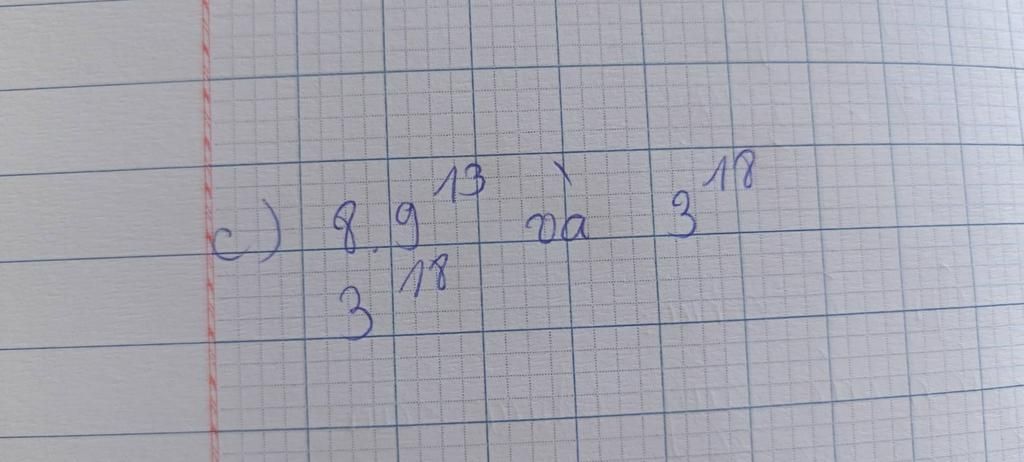 c) 8.9¹³ và 3¹⁸
3¹⁸